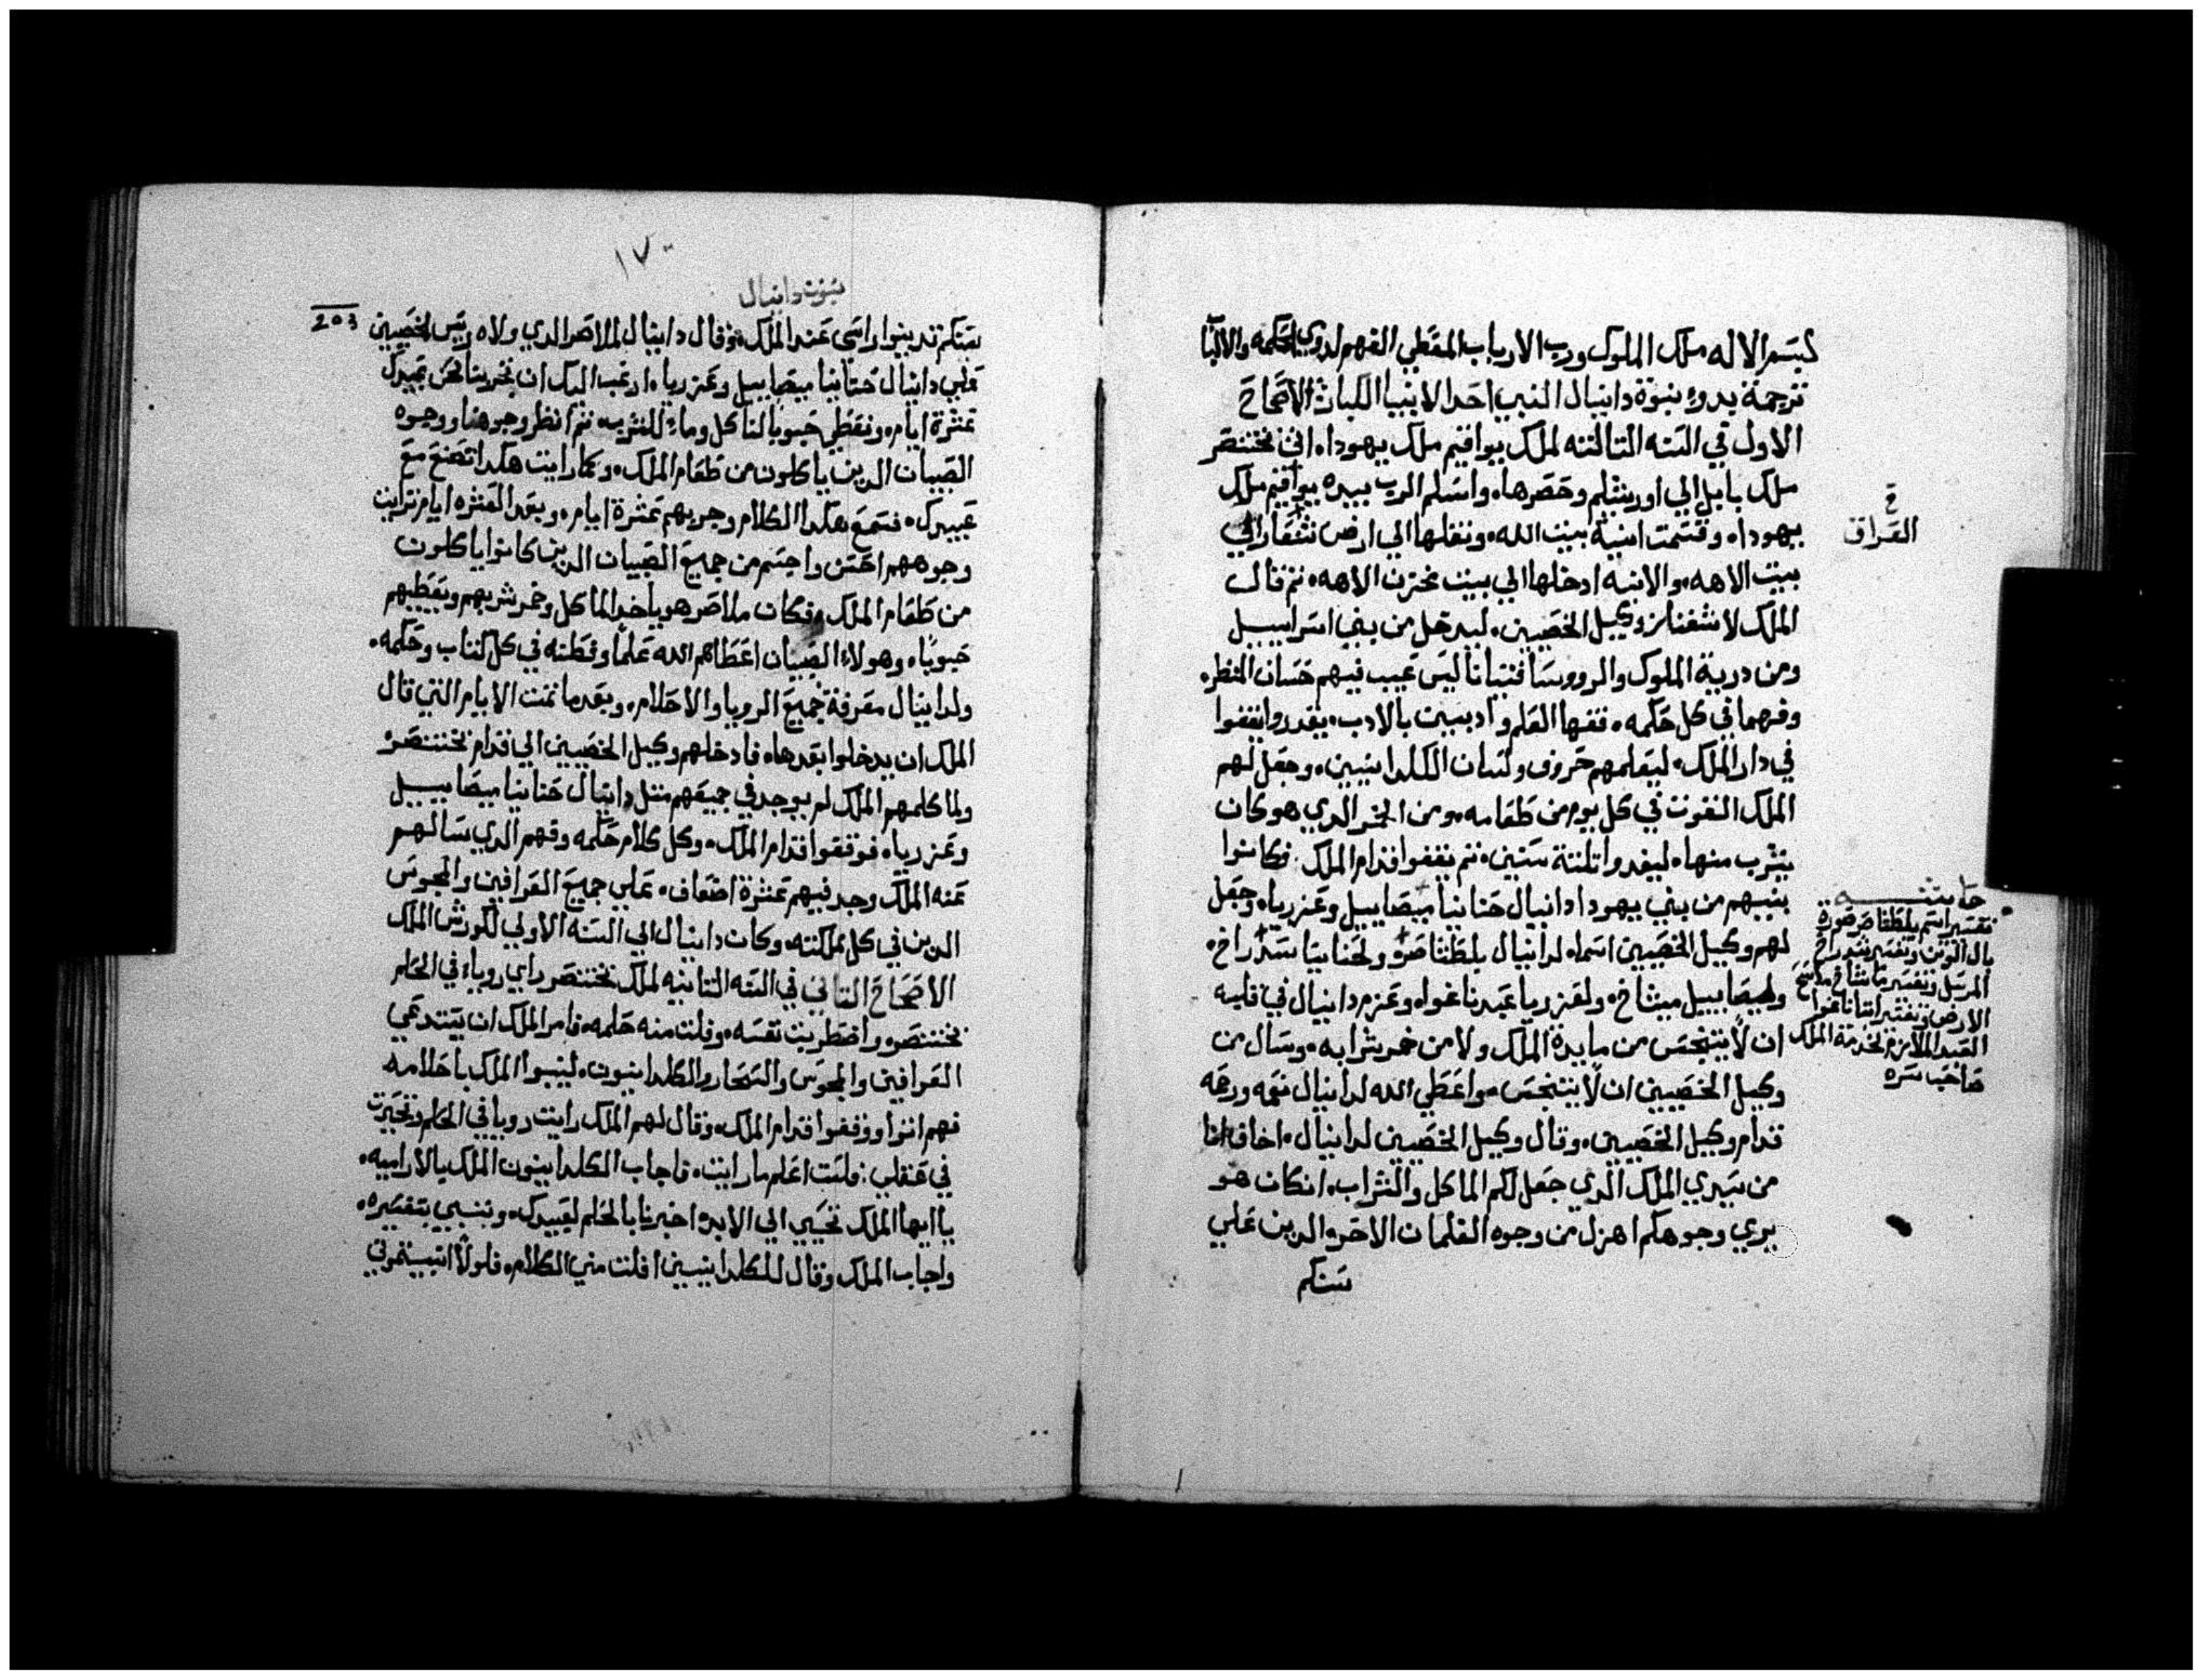 بسم الاله ملك الملوك ورب الارباب المعطي الفهم لدوي الحكمه والالباب
ترجمة بدوء نبوة دانيال النبي احد الانبيا الكبار الاصحاح
الاول في السنه التالته لملك يواقيم ملك يهودا، اتى بختنصر
ملك بابل الي اورشليم وحصرها، واسلم الرب بيده يواقيم ملك
يهودا، وقسمت انية بيت الله، ونقلها الي ارض شنعار الي
بيت الاهه، والانيه ادخلها الي بيت مخزن الاهه، تم قال
الملك لاشفناز وكيل الخصيين، ليدخل من بني اسراييل
ومن درية الملوك والرووسا فتياناً ليس عيب فيهم حسان المنظر،
وفهما في كل حكمه، فقها العلم واديبين بالادب، يقدروا يقفوا
في دار الملك، ليعلمهم حروف ولسان الكلدانيين، وجعل لهم
الملك القوت في كل يوم من طعامه، ومن الخمر الدي هو كان
يشرب منها، ليغدوا تلتة سنين، تم يقفوا قدام الملك، فكانوا
بينهم من بني يهودا دانيال حنانيا ميصاييل وعزريا، وجعل
لهم وكيل الخصيين اسما، لدانيال بلطشاصر، ولحنانيا سدراخ،
ولميصاييل ميشاخ، ولعزريا عبدناغوا، وعزم دانيال في قلبه
ان لا يتنجس من مايدة الملك ولا من خمر شرابه، وسال من
وكيل الخصيين ان لا يتنجس، واعطي الله لدانيال نعمه ورحمه
قدام وكيل الخصيين، وقال وكيل الخصيين لدانيال، اخاف انا
من سيدي الملك الدي جعل لكم الماكل والشراب، انكان هو
يري وجوهكم اهزل من وجوه الغلمان الاخر الدين علي
سنكم
خ
العراق
حاشيه
تفسير اسم بلطشاصر صورة
بال الوتن وتفسير شدراخ
المرسل وتفسير ماشاخ ماسح
الارض وتفسير اناناغوا
العبد الملازم لخدمة الملك
صاحب سره
١٧٠
نبوت دانيال
203
سنكم تدينوا راسي عند الملك، وقال دانيال لملاصر الدي ولاه رييس الخصيين
علي دانيال حنانيا ميصاييل وعزريا، ارغب اليك ان تجربنا نحن عبيدك
عشرة ايام، ونعطي حبوباً لناكل وماء للشرب، تم انظر وجوهنا ووجوه
الصبيان الدين ياكلون من طعام الملك، وكما رايت هكدا تصنع مع
عبيدك، فسمع هكدا الكلام وجربهم عشرة ايام، وبعد العشره ايام تراييت
وجوههم احسن واجسم من جميع الصبيان الدين كانوا ياكلون
من طعام الملك، وكان ملاصر هو ياخد الماكل وخمر شربهم ويعطيهم
حبوباً، وهولاء الصبيان اعطاهم الله علماً وفطنه في كل كتاب وحكمه،
ولدانيال معرفة جميع الرويا والاحلام، وبعد ما تمت الايام التي قال
الملك ان يدخلوا بعدها، فادخلهم وكيل الخصيين الي قدام بختنصر،
ولما كلمهم الملك لم يوجد في جميعهم متل دانيال حنانيا ميصاييل
وعزريا، فوقفوا قدام الملك، وكل كلام حكمه وفهم الدي سالهم
عنه الملك وجد فيهم عشرة اضعاف، علي جميع العرافين والمجوس
الدين في كل مملكته، وكان دانيال الي السنه الاولي لكورش الملك
الاصحاح التاني في السنه التانيه لملك بختنصر راي روياء في الحلم
بختنصر، واضطربت نفسه، وفلت منه حلمه، فامر الملك ان يستدعي
العرافين والمجوس والسحار والكلدانيون، لينبوا الملك باحلامه
فهم اتوا ووقفوا قدام الملك، وقال لهم الملك رايت رويا في الحلم وتحيرت
في عقلي: فلست اعلم ما رايت، فاجاب الكلدانيون الملك بالارامية،
يا ايها الملك تحيي الي الابد، اخبرنا بالحلم لعبيدك، وننبي بتفسيره،
واجاب الملك وقال للكلدانيين افلت مني الكلام، فلولا